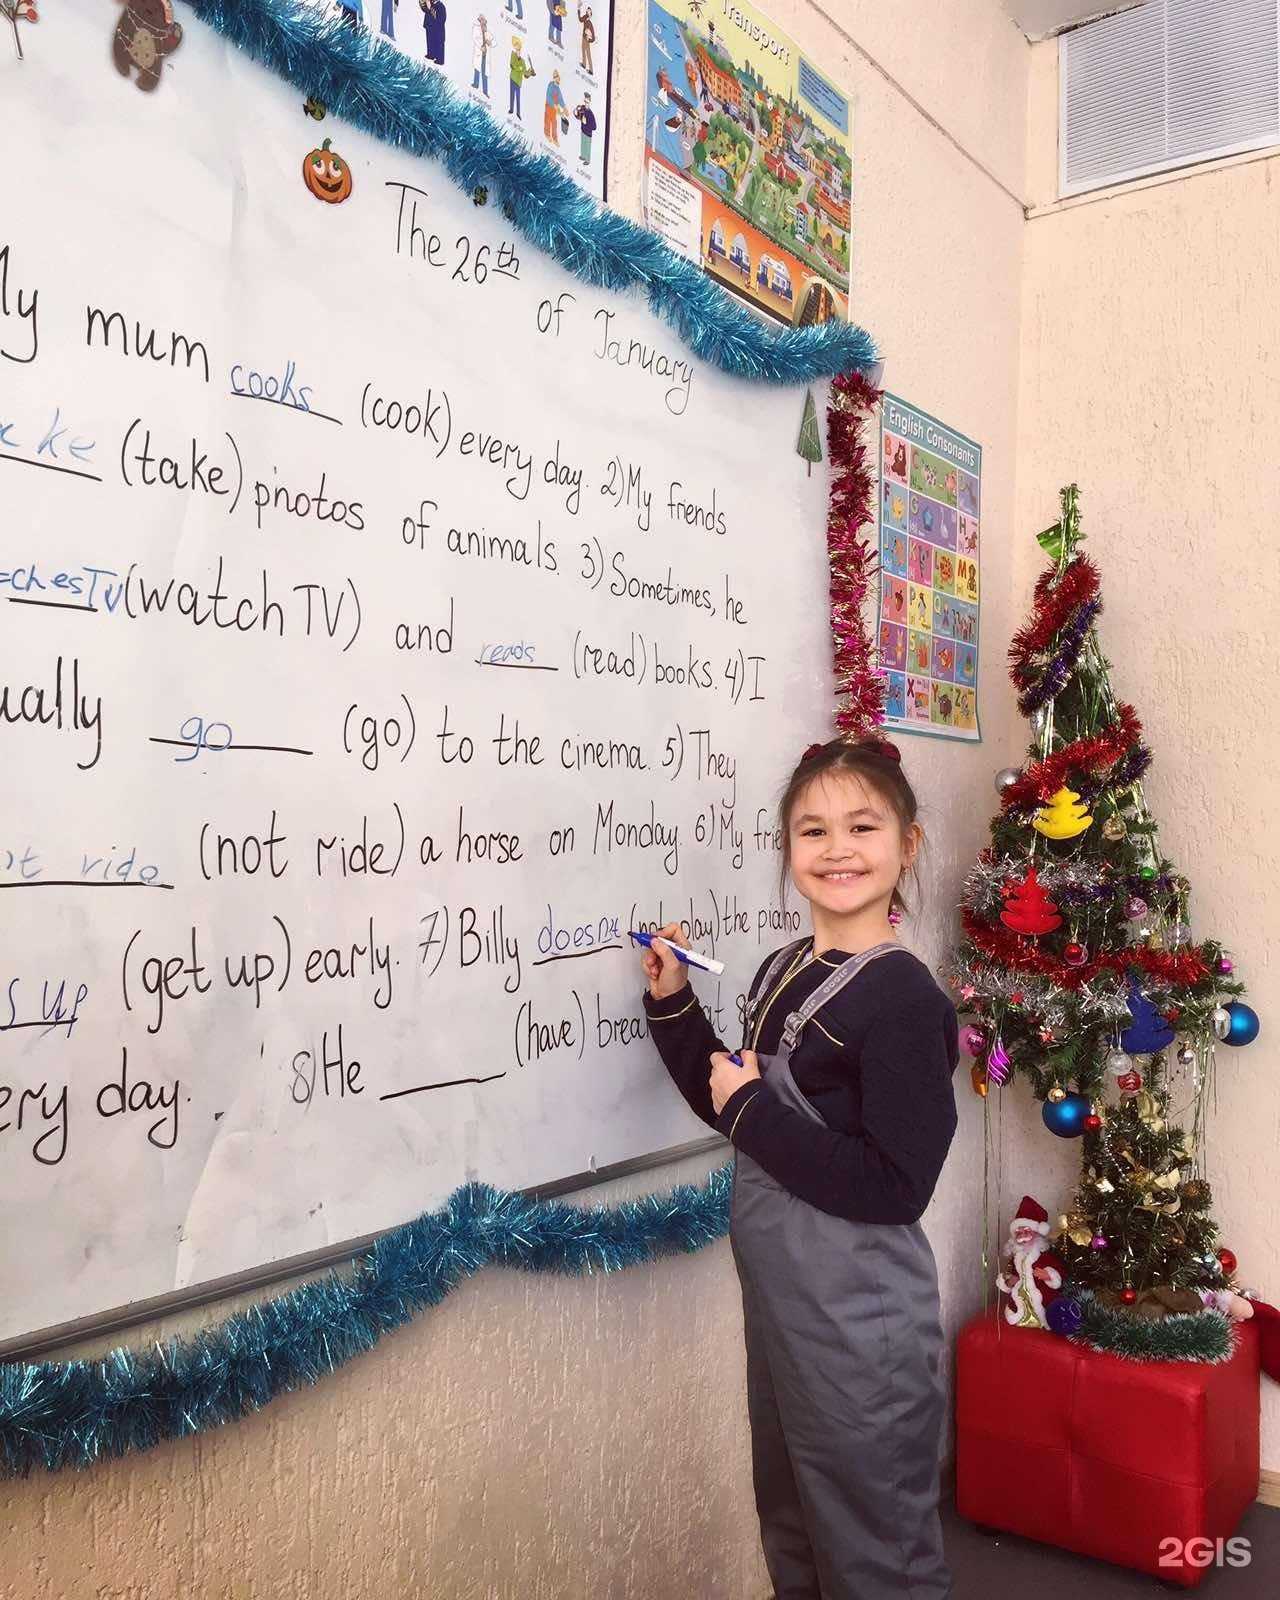 Transport
The 26th
of January
mum cooks (cook) every day. 2) My friends
(take) photos of animals. 3) Sometimes, he
ches TV (watch TV) and reads (read) books. 4) I
ually go (go) to the cinema. 5) They
ride (not ride) a horse on Monday. 6) My frie
s up (get up) early. 7) Billy doesnt (not play) the piano
ery day. 8) He ____ (have) brea at 8
English Consonants
2GIS